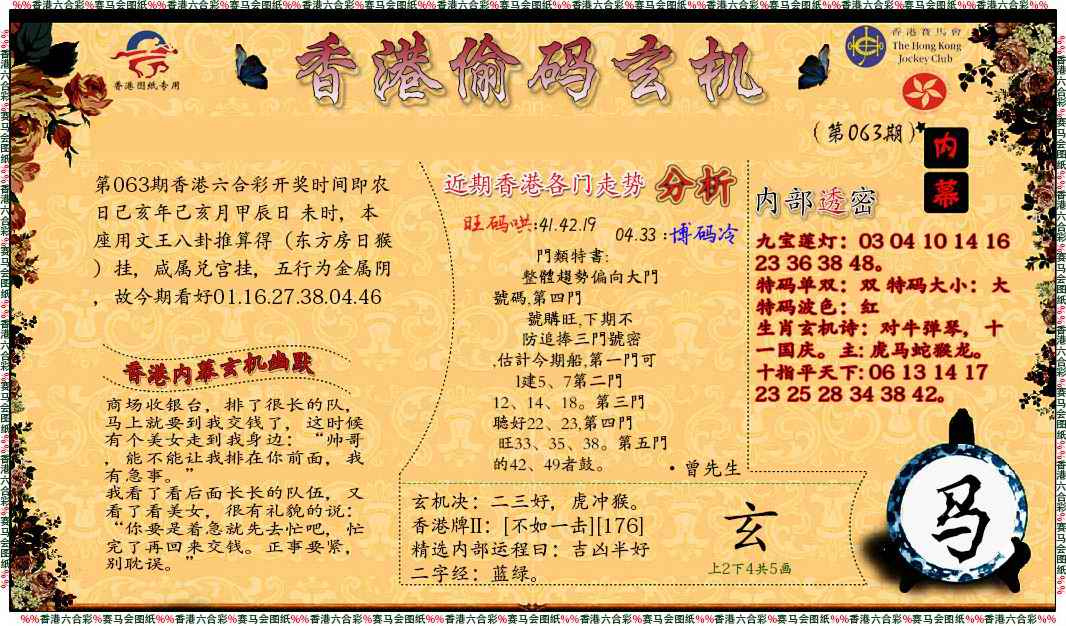 %%香港六合彩%赛马会图纸%%香港六合彩%赛马会图纸%%香港六合彩%赛马会图纸%%香港六合彩%赛马会图纸%%香港六合彩%赛马会图纸%%香港六合彩%赛马会图纸%%香港六合彩%赛马会图纸%%
香港图纸专用
香港偷码玄机
香港賽馬會
The Hong Kong
Jockey Club
（第063期）
内
幕
第063期香港六合彩开奖时间即农
日己亥年己亥月甲辰日 未时，本
座用文王八卦推算得（东方房日猴
）挂，咸属兑宫挂，五行为金属阴
，故今期看好01.16.27.38.04.46
香港内幕玄机幽默
商场收银台，排了很长的队，
马上就要到我交钱了，这时候
有个美女走到我身边：“帅哥
，能不能让我排在你前面，我
有急事。”
我看了看后面长长的队伍，又
看了看美女，很有礼貌的说：
“你要是着急就先去忙吧，忙
完了再回来交钱。正事要紧，
别耽误。”
近期香港各门走势 分析
旺码哄:41.42.19
04.33 :博码冷
門類特書:
整體趨勢偏向大門
號碼,第四門
號購旺,下期不
防追捧三門號密
,估計今期船,第一門可
1建5、7第二門
12、14、18。第三門
聽好22、23,第四門
旺33、35、38。第五門
的42、49者鼓。
・曾先生
玄机决：二三好，虎冲猴。
香港牌II：[不如一击][176]
精选内部运程曰：吉凶半好
二字经：蓝绿。
玄
上2下4共5画
内部透密
九宝莲灯：03 04 10 14 16
23 36 38 48。
特码单双：双 特码大小：大
特码波色：红
生肖玄机诗：对牛弹琴，十
一国庆。主: 虎马蛇猴龙。
十指平天下: 06 13 14 17
23 25 28 34 38 42。
马
%%香港六合彩%赛马会图纸%%香港六合彩%赛马会图纸%%香港六合彩%赛马会图纸%%香港六合彩%赛马会图纸%%香港六合彩%赛马会图纸%%香港六合彩%赛马会图纸%%香港六合彩%赛马会图纸%%